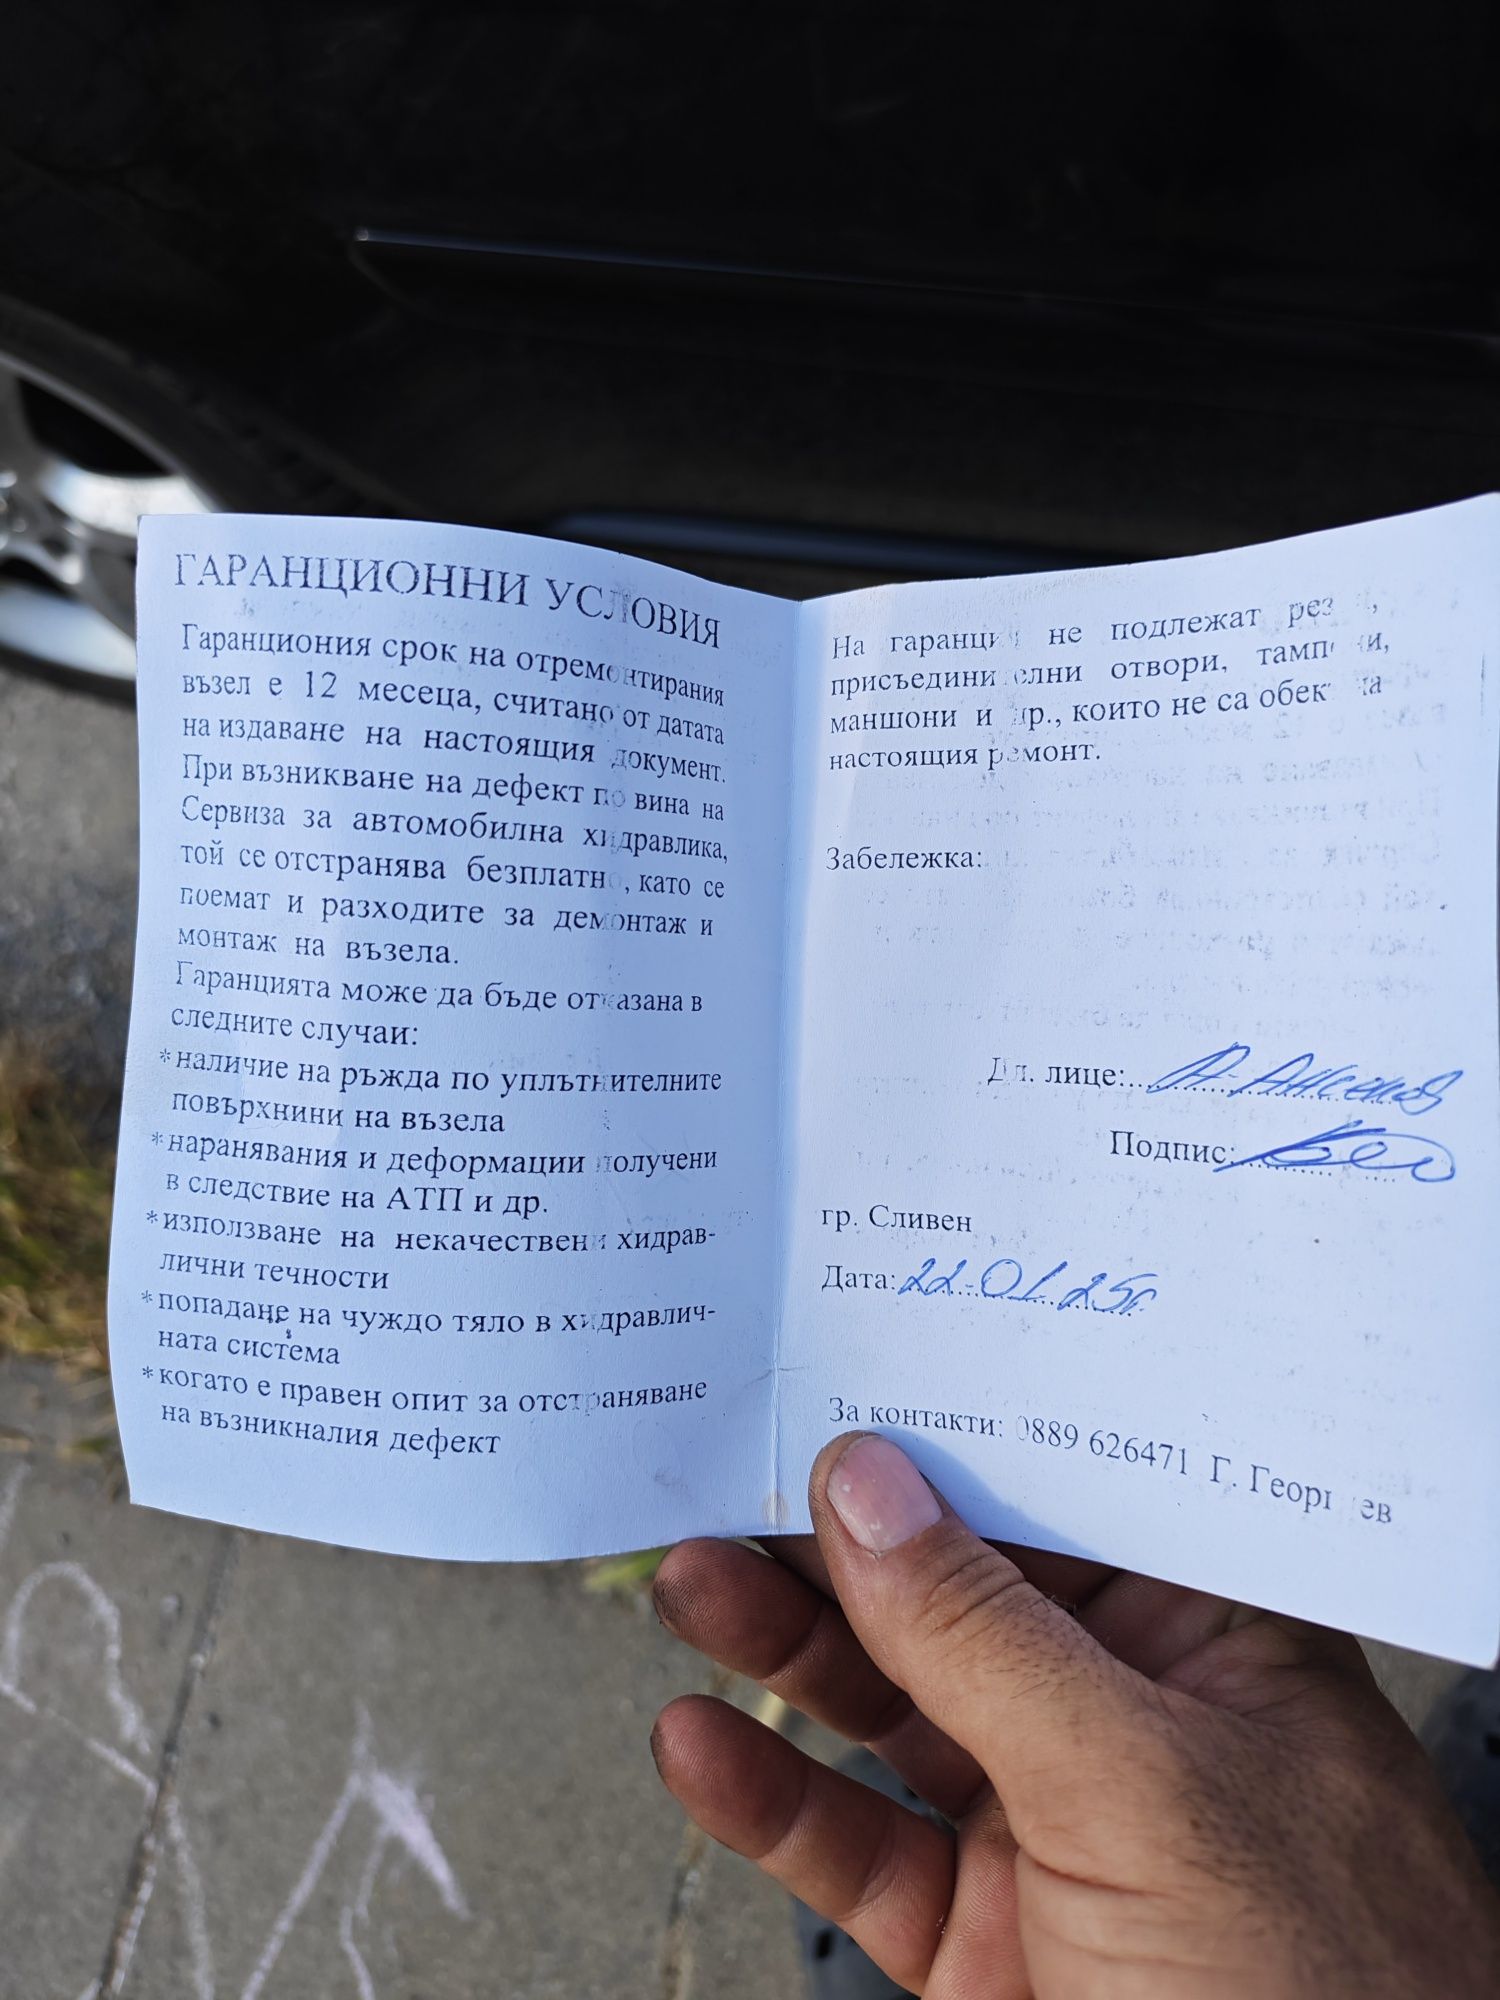 ГАРАНЦИОННИ УСЛОВИЯ
Гаранциония срок на отремонтирания
възел е 12 месеца, считано от датата
на издаване на настоящия документ.
При възникване на дефект по вина на
Сервиза за автомобилна хидравлика,
той се отстранява безплатно, като се
поемат и разходите за демонтаж и
монтаж на възела.
Гаранцията може да бъде отказана в
следните случаи:
*наличие на ръжда по уплътнителните
повърхнини на възела
*наранявания и деформации получени
в следствие на АТП и др.
*използване на некачествени хидрав-
лични течности
*попадане на чуждо тяло в хидравлич-
ната система
*когато е правен опит за отстраняване
на възникналия дефект
На гаранция не подлежат
присъединителни отвори,
маншони и др., които не са обект на
настоящия ремонт.
Забележка:
Дл. лице:
Подпис:
гр. Сливен
Дата: 22.01.25г.
За контакти: 0889 626471 Г. Георгиев